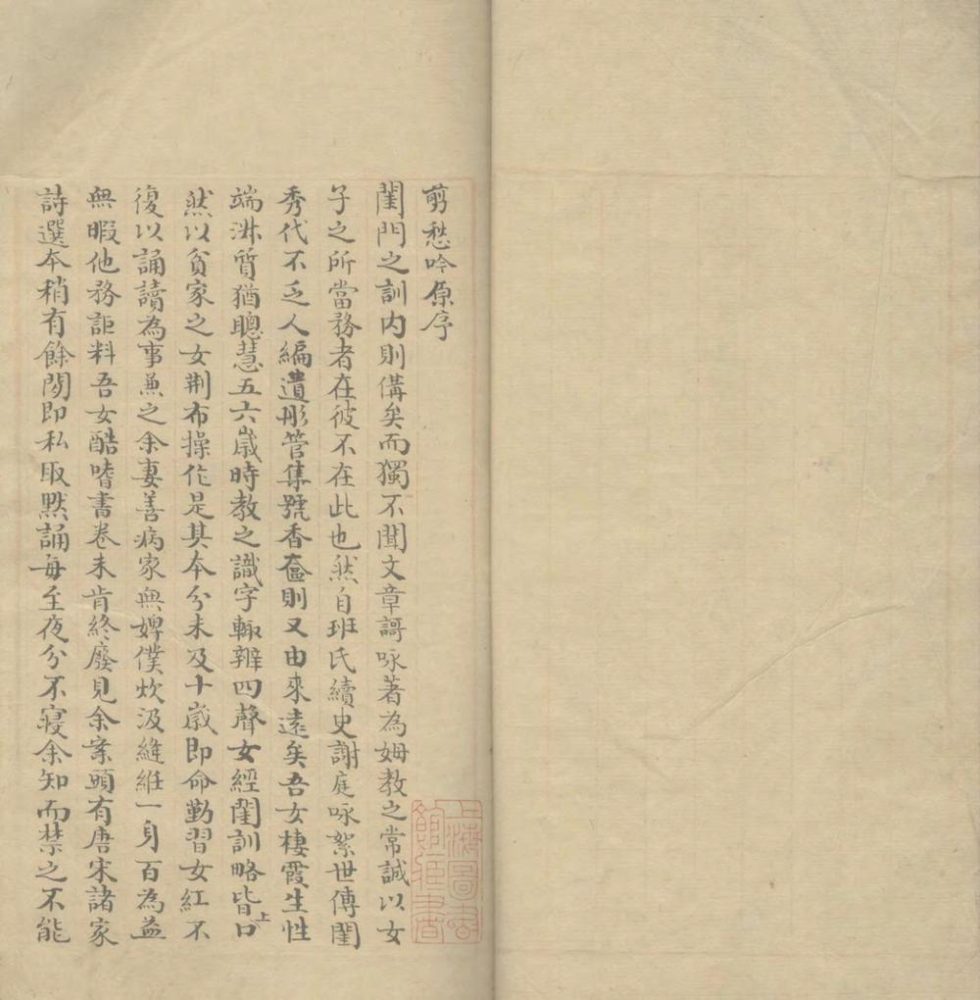 剪愁吟原序
閨門之訓内則俻矣而獨不聞文章謌咏著為姆教之常誠以女
子之所當務者在彼不在此也然自班氏續史謝庭咏絮世傳閨
秀代不乏人編遺彤管集號香奩則又由來遠矣吾女棲霞生性
端淋質猶聰慧五六歲時教之識字輙辨四聲女經閨訓略皆上口
然以貧家之女荆布操作是其本分未及十歲即命勤習女紅不
復以誦讀為事兼之余妻善病家無婢僕炊汲縫紝一身百為益
無暇他務詎料吾女酷嗜書卷未肯終廢見余案頭有唐宋諸家
詩選本稍有餘閒即私取默誦每至夜分不寢余知而禁之不能
上海圖書館藏書